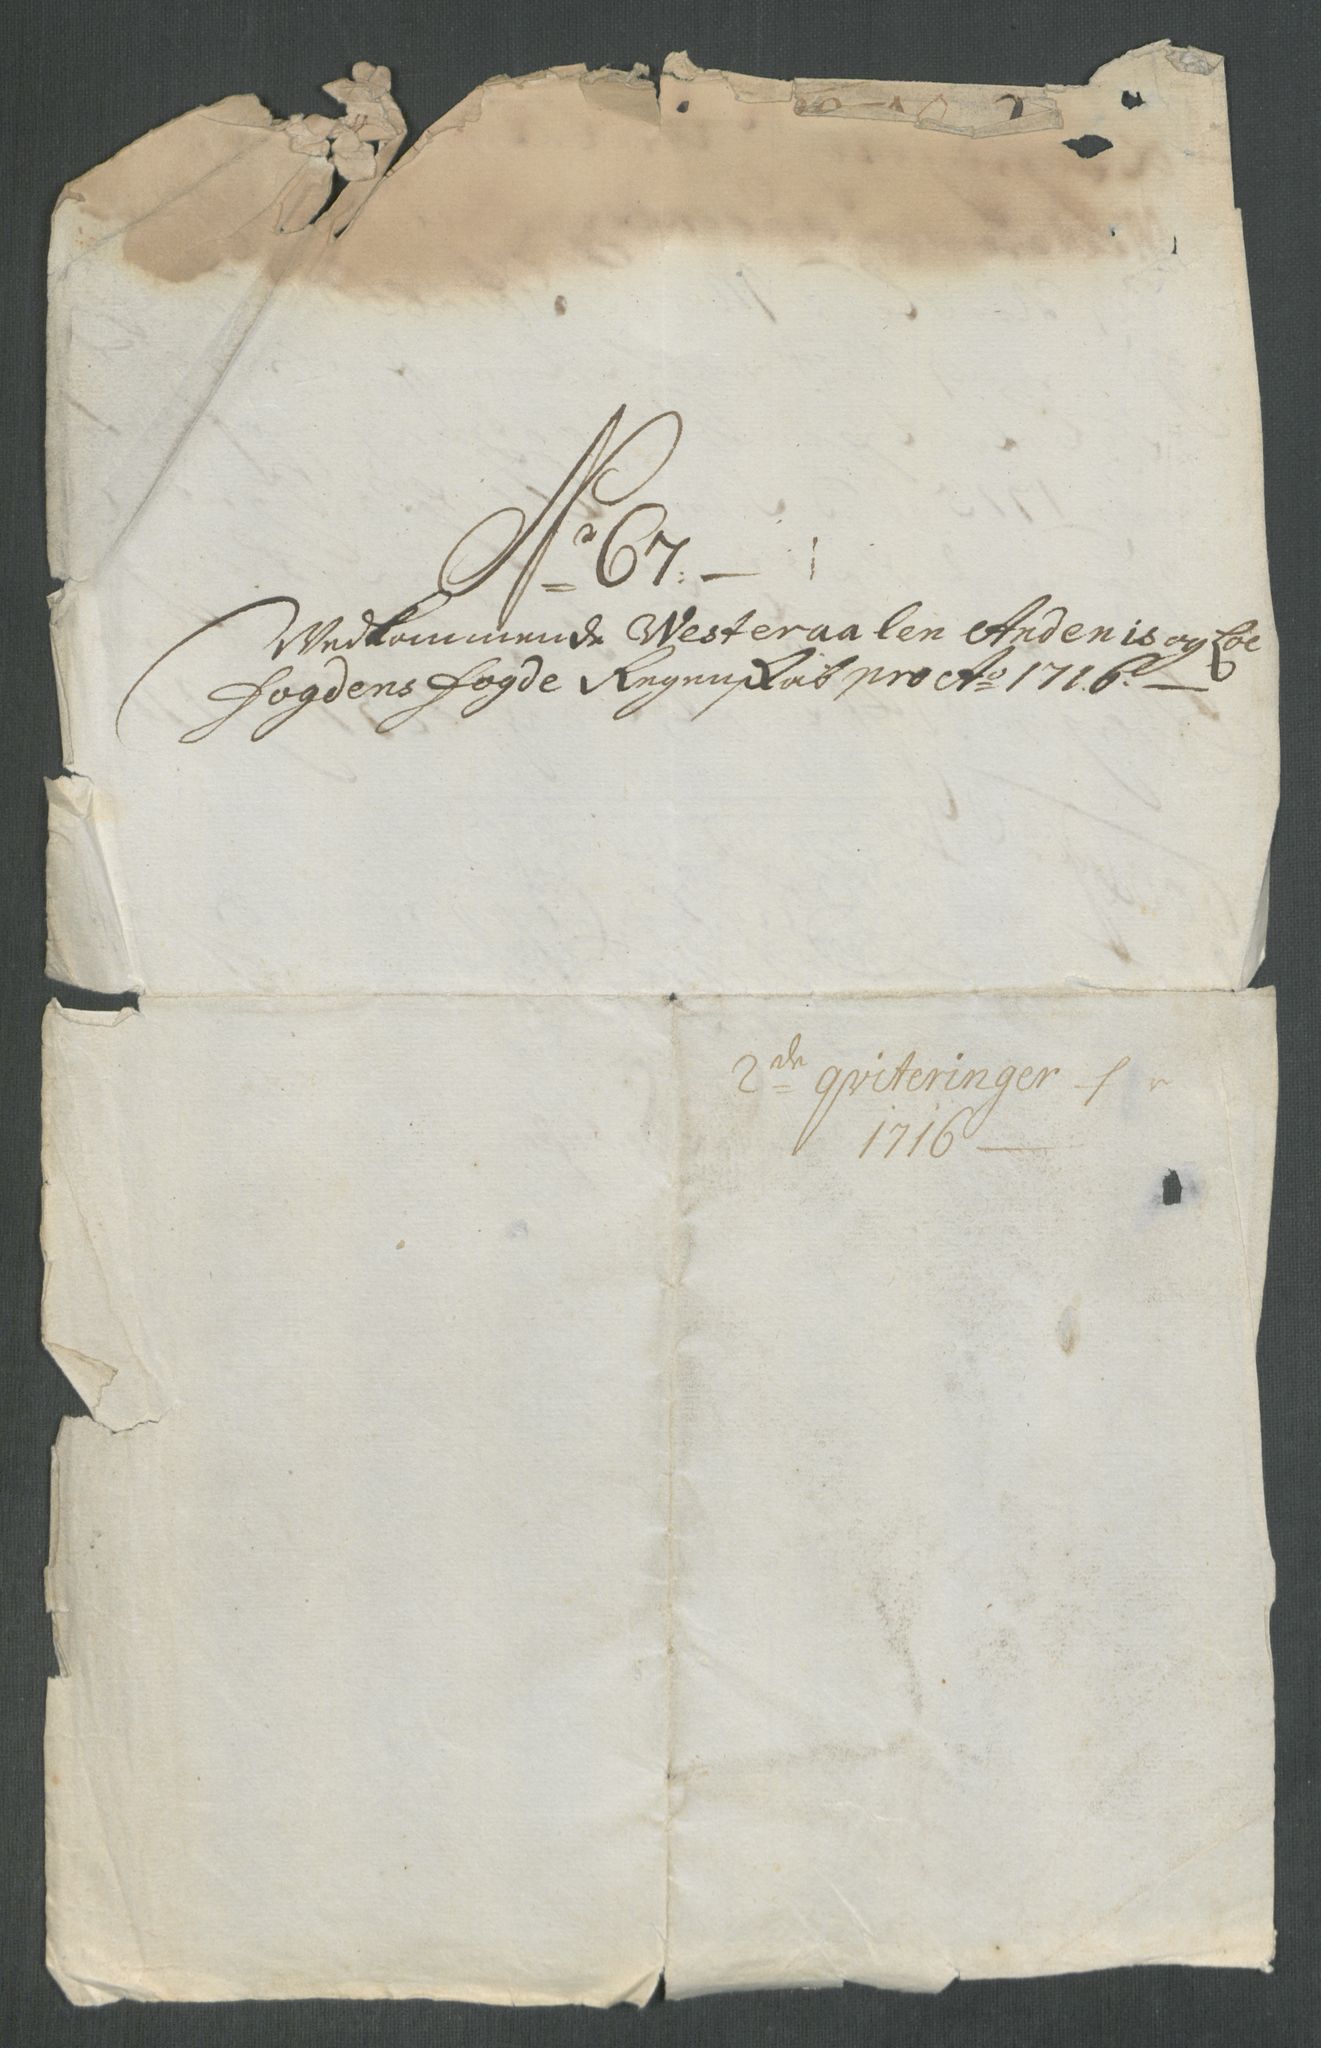 No 67.
Vedkommende Westeraalen Andenis og Loe
fogdens fogde Regenskab pro Ao 1716.
2de qviteringer
1716